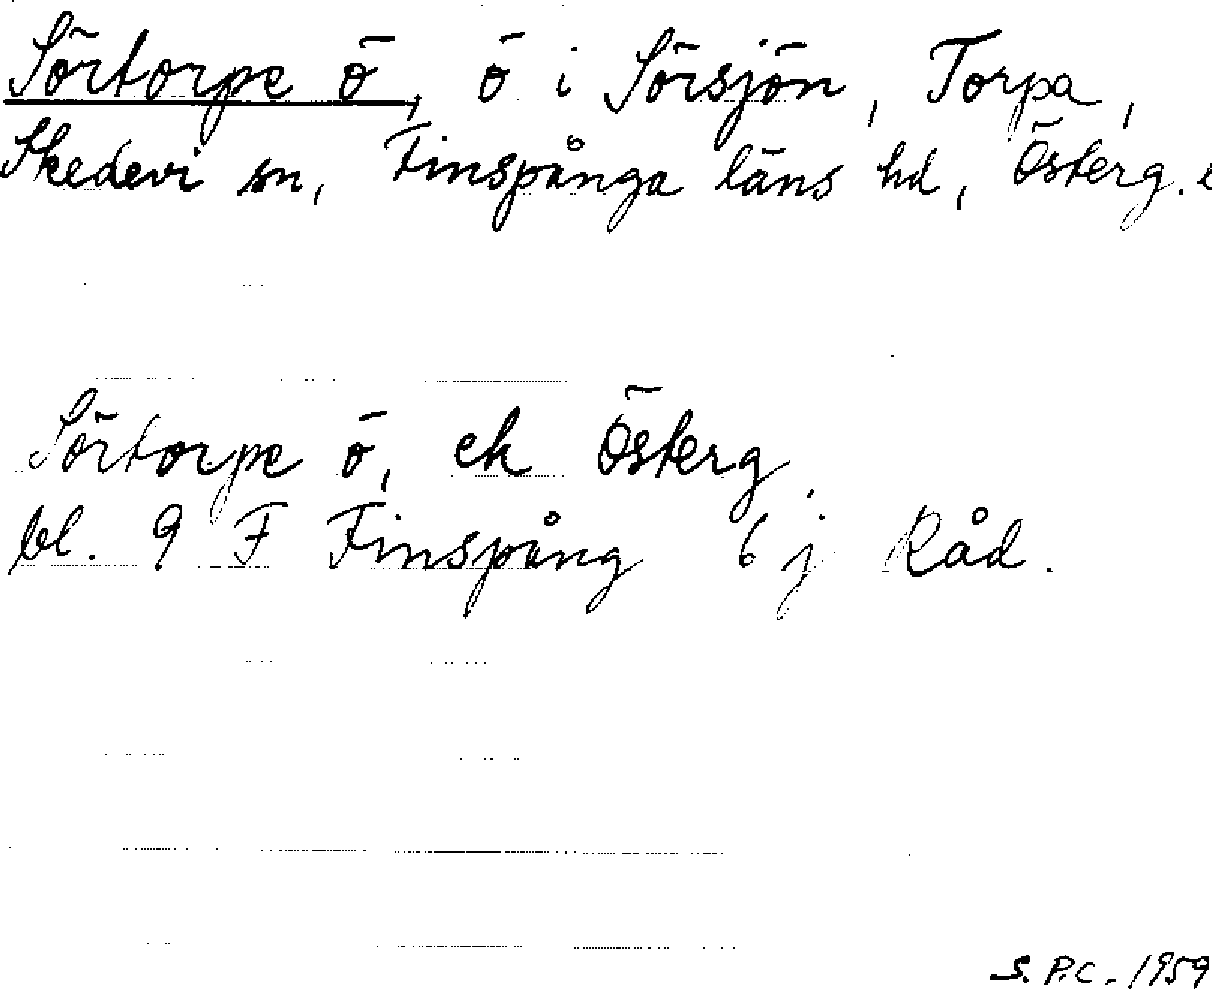 Sörtorpe ö, ö i Sörsjön, Torpa,
Skedevi sn, Finspånga läns hd, Österg.
Sörtorpe ö, ek Österg.
bl. 9 F Finspång 6 j Råd.
S.P.C. 1959